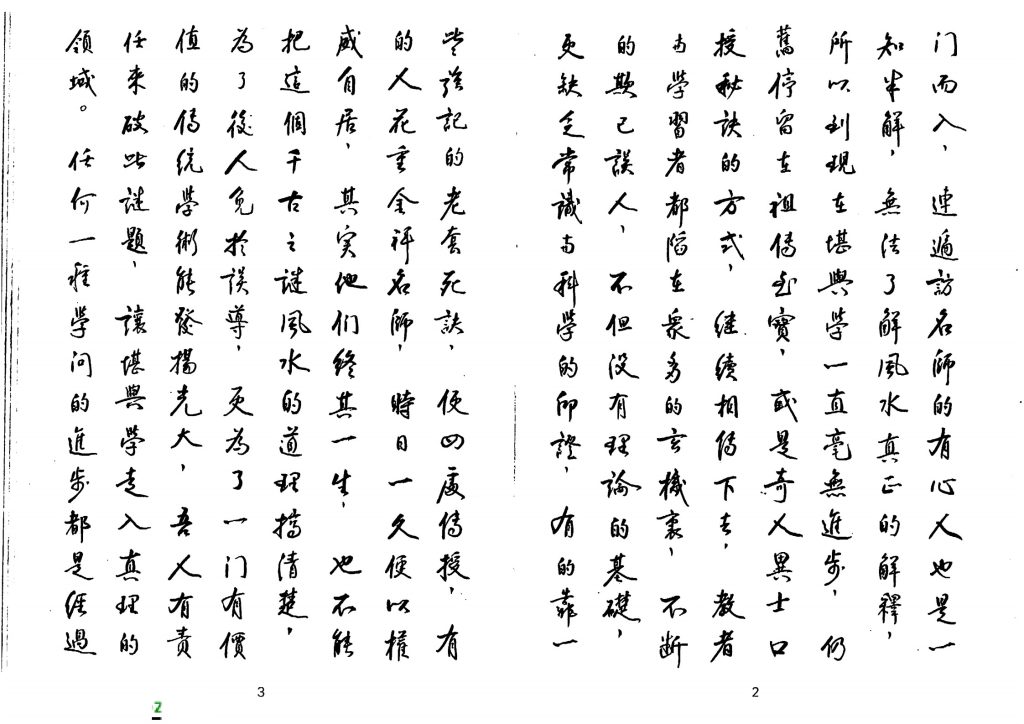 门而入，連遍訪名師的有心人也是一
知半解，無法了解風水真正的解釋，
所以到現在堪輿學一直毫無進步，仍
舊停留在祖傳至寶，或是奇人異士口
授秘訣的方式，継續相傳下去，教者
与學習者都陷在衆多的玄機裏，不断
的欺己誤人，不但没有理論的基礎，
更缺乏常識与科學的印證，有的靠一
2
些強記的老套死訣，便四處傳授，有
的人花重金拜名師，時日一久便以權
威自居，其实他们終其一生，也不能
把這個千古之謎風水的道理搞清楚，
為了後人免於誤導，更為了一门有價
值的傳統學術能發揚光大，吾人有責
任來破此謎題，讓堪輿學走入真理的
領域。任何一種學问的進步都是經過
3
2